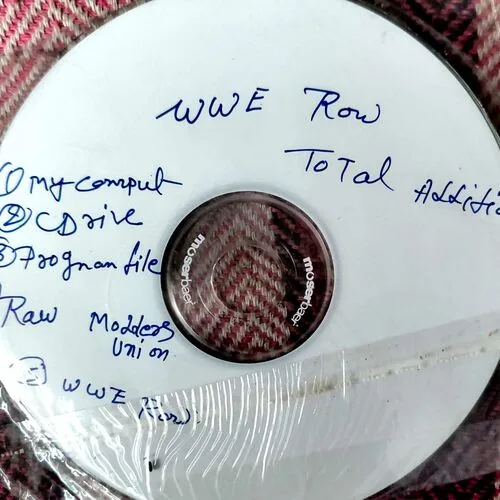 WWE Row
ToTal Additio
1) my comput
2) C Drive
3) Program file
Raw Modders
union
5 WWE Row
moserbaer
moserbaer